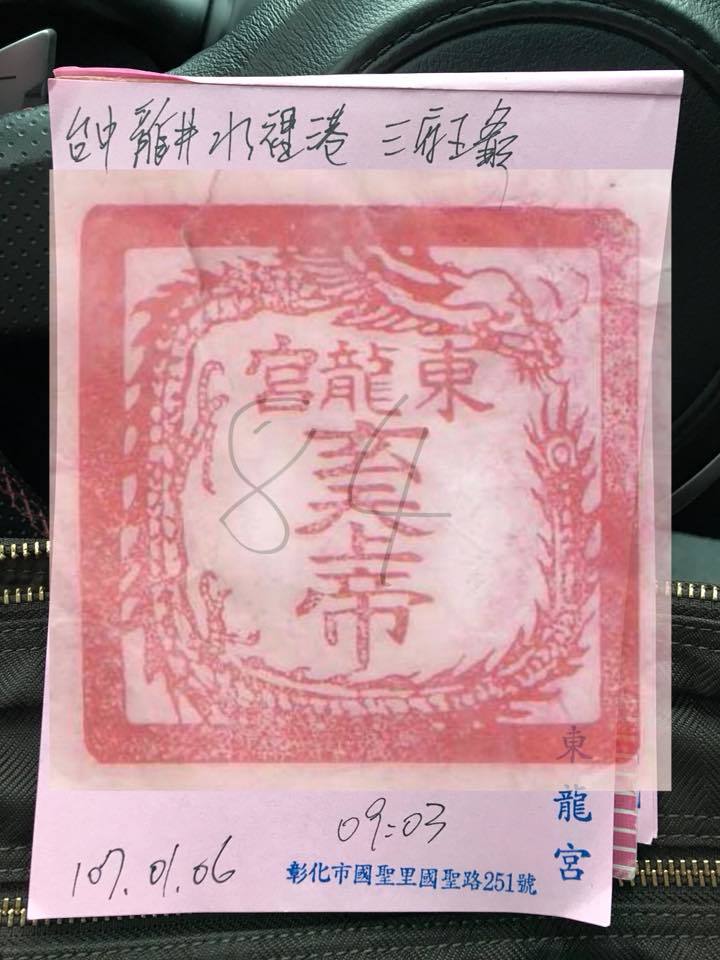 台中 龍井 水裡港 三府王爺
東龍宮
玄天上帝
84
東龍宮
09:03
107.01.06
彰化市國聖里國聖路251號